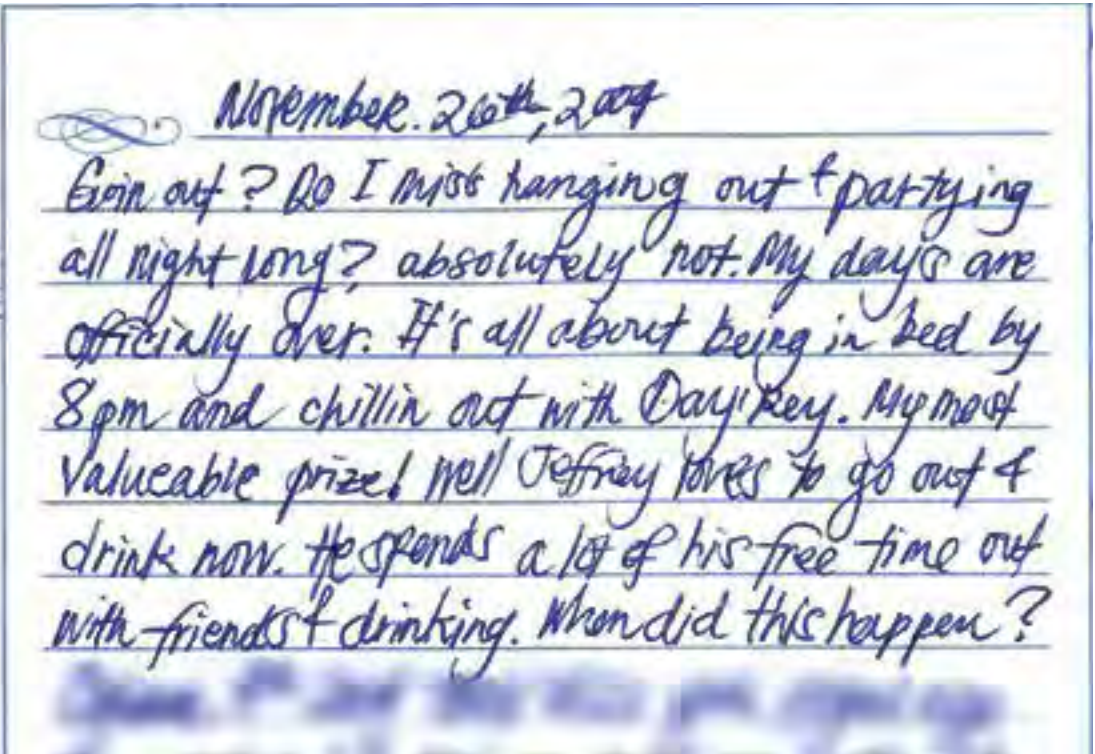 November. 26th, 2009
Goin out? Do I miss hanging out & partying
all night long? absolutely not. My day's are
officially over. It's all about being in bed by
8pm and chillin out with Day'Key. My most
Valueable prize! Well Jeffrey loves to go out &
drink now. He spends a lot of his free time out
with friends & drinking. When did this happen?